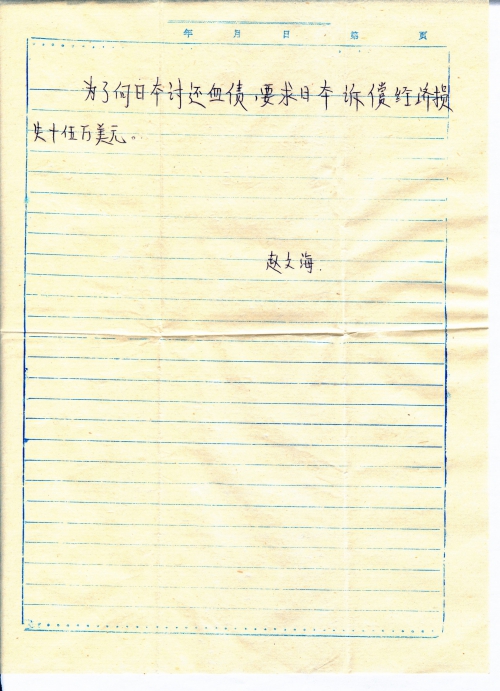 年 月 日 第 页
为了何日本讨还血债,要求日本诉偿经济损
失十伍万美元。
赵文海.